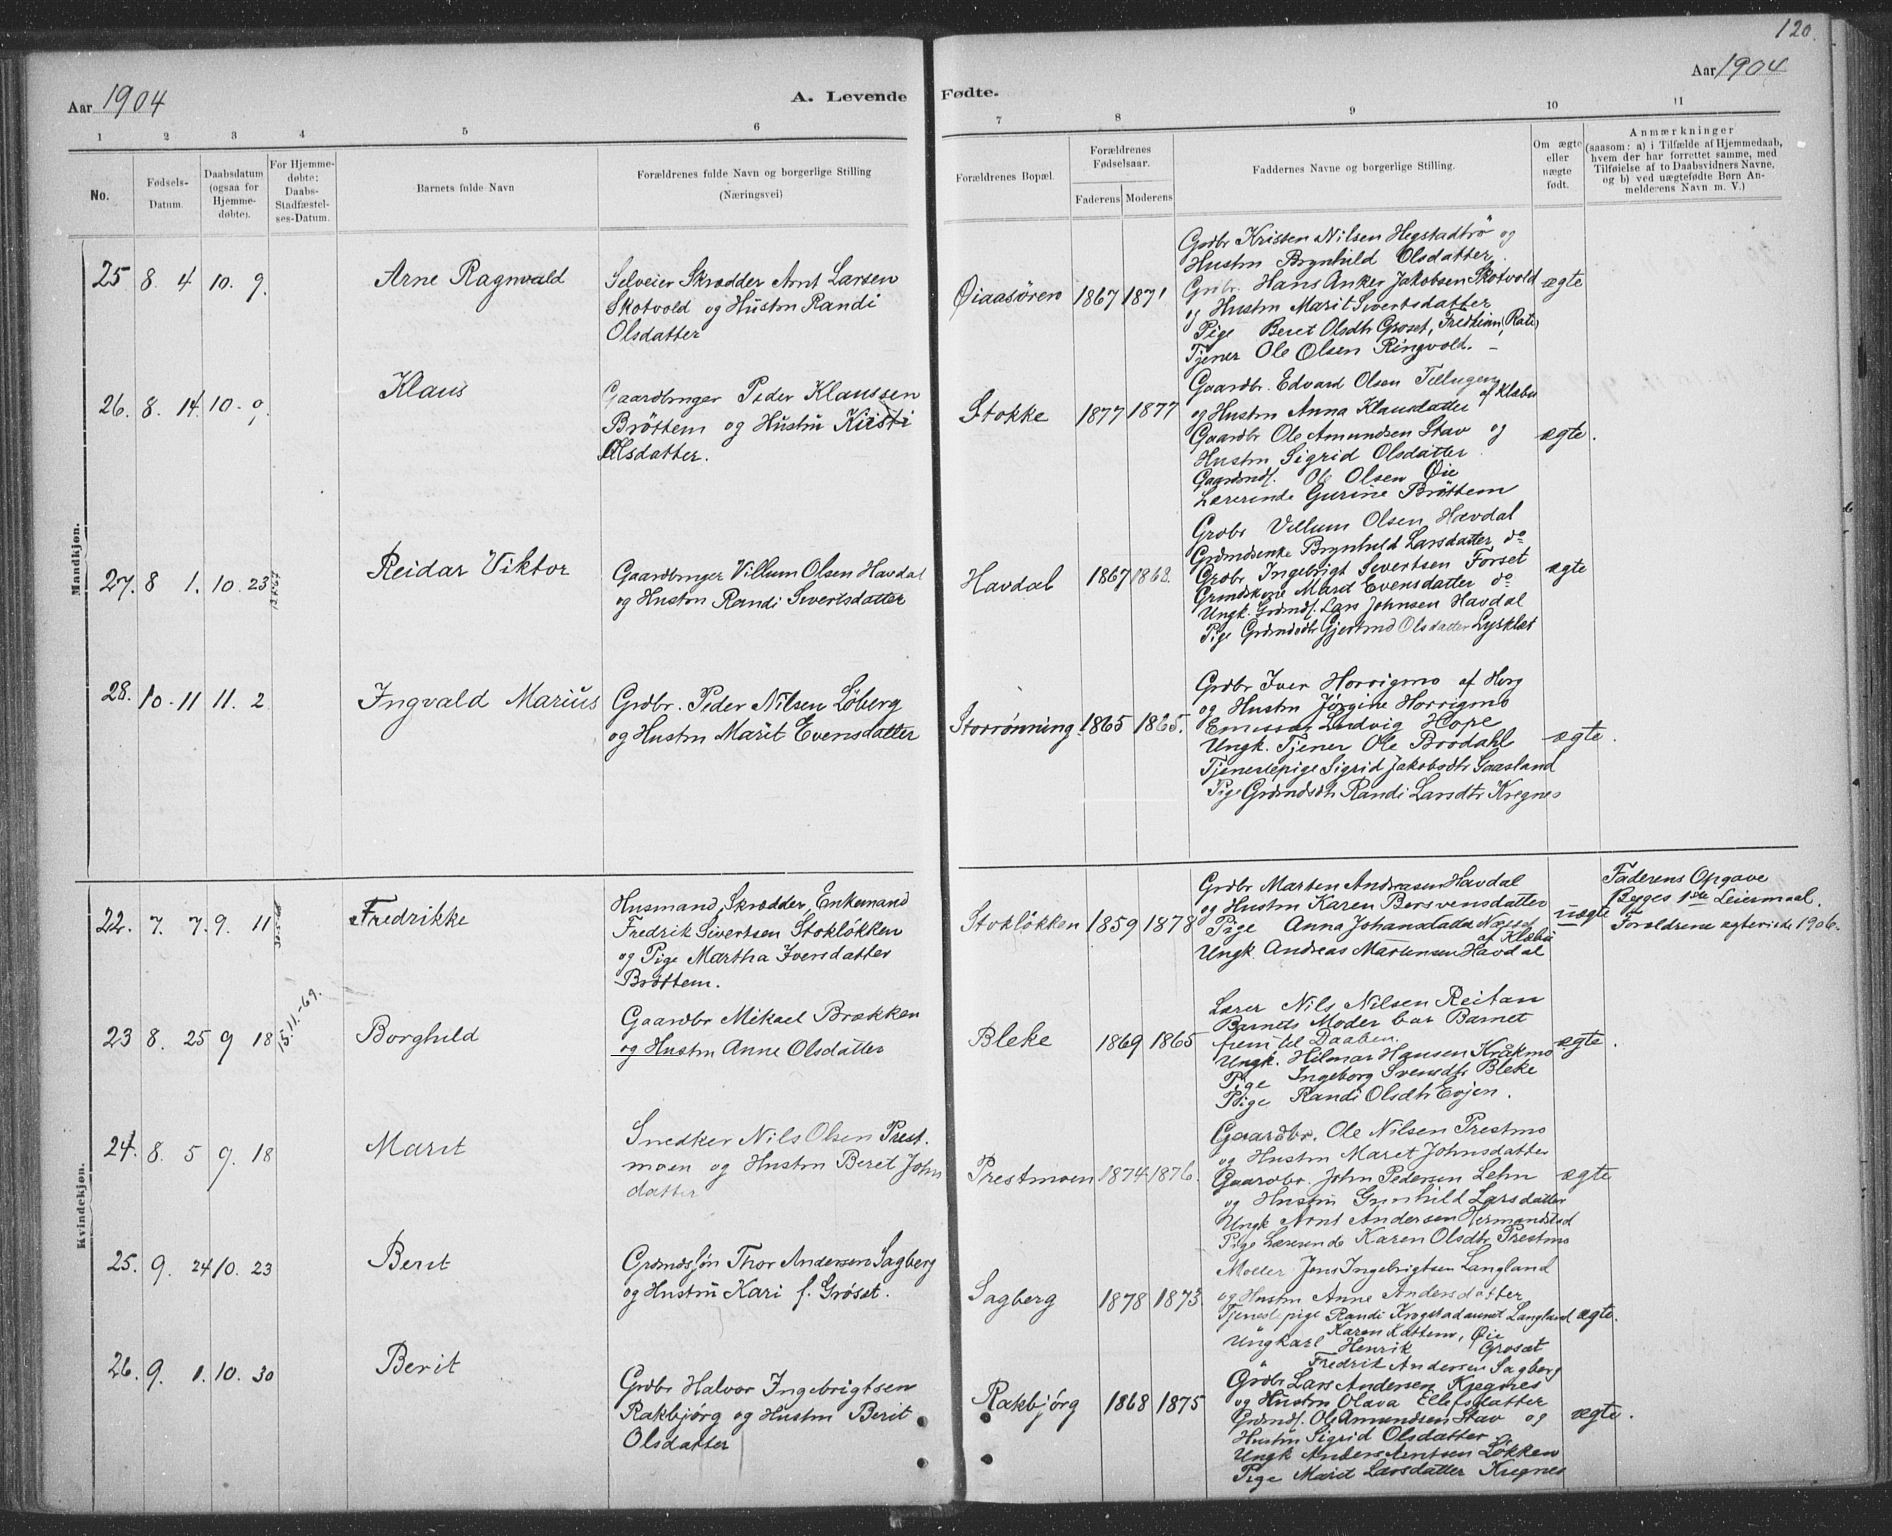 120.
Aar 1904
A. Levende Fødte.
Aar 1904
1 2 3 4 5 6 7 8 9 10 11
No.
Fødsels-Datum.
Daabsdatum (ogsaa for Hjemme-døbte).
For Hjemme-døbte: Daabs-Stadfæstel-ses-Datum.
Barnets fulde Navn
Forældrenes fulde Navn og borgerlige Stilling (Næringsvei)
Forældrenes Bopæl.
Forældrenes Fødselsaar.
Faderens Moderens
Faddernes Navne og borgerlige Stilling.
Om ægte eller uægte født.
Anmærkninger
(saasom: a) i Tilfælde af Hjemmedaab,
hvem der har forrettet samme, med
Tilføielse af to Daabsvidners Navne,
og b) ved uægtefødte Børn An-
melderens Navn m. V.)
Mandkjøn.
25 8 4 10. 9.
Arne Ragnvald
Selveier Skrædder Arnt Larsen
Skotvold og Hustru Randi
Olsdatter
Øiaasøren 1867 1871
Grdbr Kristen Nilsen Hegstadtrø og
Hustru Brynhild Olsdatter.
Grdbr. Hans Anker Jakobsen Skotvold
og Hustru Marit Sivertsdatter
Pige Beret Olsdtr Groset,
Tjener Ole Olsen Ringvold. –
ægte
26. 8. 14. 10. 9.
Klaus
Gaardbruger Peder Klaussen
Brøttem og Hustru Kirsti
Olsdatter.
Stokke 1877 1877
Gaardbr. Edvard Olsen Tellugen
af Klæbu
og Hustru Anna Klausdatter
Gaardbr Ole Amundsen Stav og
Hustru Sigrid Olsdatter
Gaardmdf. Ole Olsen Øie
Lærerinde Gurine Brøttem
ægte.
27. 8 1. 10. 23
Reidar Viktor
Gaardbruger Villum Olsen Havdal
og Hustru Randi Sivertsdatter
Havdal 1867 1868.
Grdbr Villum Olsen Hævdal
Grdmdsenke Brynhild Larsdatter do
Grdbr Ingebrigt Sivertsen Forset
Marit Evensdatter do
Ungk. Grdmdf. Lars Johnsen Havdal
Pige Grdmdsdtr Gjertrud Olsdatter Lysklæt
ægte
28. 10. 11 11. 2
Ingvald Marius
Grdbr. Peder Nilsen Løberg
og Hustru Marit Evensdatter
Storrønning. 1865 1865.
Grdbr Iver Horrigmo af Horg
og Hustru Jørgine Horrigmo
Emissær Ludvig Hope
Ungk. Tjener Ole Brodahl
Tjenestepige Sigrid Jakobsdtr Gaasland
Pige Grdmdsdtr Randi Larsdtr Kregnes
ægte.
Kvindekjøn.
22. 7. 7. 9. 11
Fredrikke
Husmand, Skrædder, Enkemand
Fredrik Sivertsen Stokløkken
og Pige Martha Iversdatter
Brøttem.
Stokløkken 1859 1878
Grdbr Marten Andreasen Havdal
og Hustru Karen Bersvensdatter
Pige Anna Johansdatter
af Klæbu
Ungk. Andreas Martensen Havdal
uægte
Faderens Opgave
Begges 1ste Leiermaal.
Forældrene ægteviede 1906.
23 8. 25 9 18
15.11.-69.
Borghild
Gaardbr Mikael Brækken
og Hustru Anne Olsdatter
Bleke 1869 1865
Lærer Nils Nilsen Reitan
Barnets Moder bar Barnet
frem til Daaben.
Ungk. Hilmar Hansen Kråkmo
Pige Ingeborg Svensdtr Bleke
Pige Randi Olsdtr Evjen.
ægte.
24. 8. 5 9. 18
Marit
Snedker Nils Olsen Prest.
moen og Hustru Beret John
datter
Prestmoen 1874 1876.
Gaardbr. Ole Nilsen Prestmo
og Hustru Maret Johnsdatter
Gaardbr. John Pedersen Lehn
og Hustru Gunhild Larsdatter
Ungk Arnt Andersen Hermandstad
Pige Lærerinde Karen Olsdtr Prestmo
ægte
25. 9. 24 10. 23
Berit
Grdmdssøn Thor Andersen Sagberg
og Hustru Kari f. Grøset.
Sagberg 1878 1873
Møller Jens Ingebrigtsen Langland
og Hustru Anne Andersdatter
Tjenestepige Randi Krogstadaunet Langland
Karen Kattem, Øie
Ungkarl Henrik Grøset
Fredrik Andersen Sagberg
ægte.
26. 9. 1. 10. 30
Berit
Grdbr Halvor Ingebrigtsen
Rakbjørg og Hustru Berit
Olsdatter
Rakbjørg 1868 1875
Grdbr Lars Andersen Kregnes
og Hustru Olava Ellefsdatter
Grdmdf. Ole Amundsen Stav og
Hustru Sigrid Olsdatter
Ungk Anders Arntsen Løkken
Pige Marit Larsdatter Kregnes
ægte.